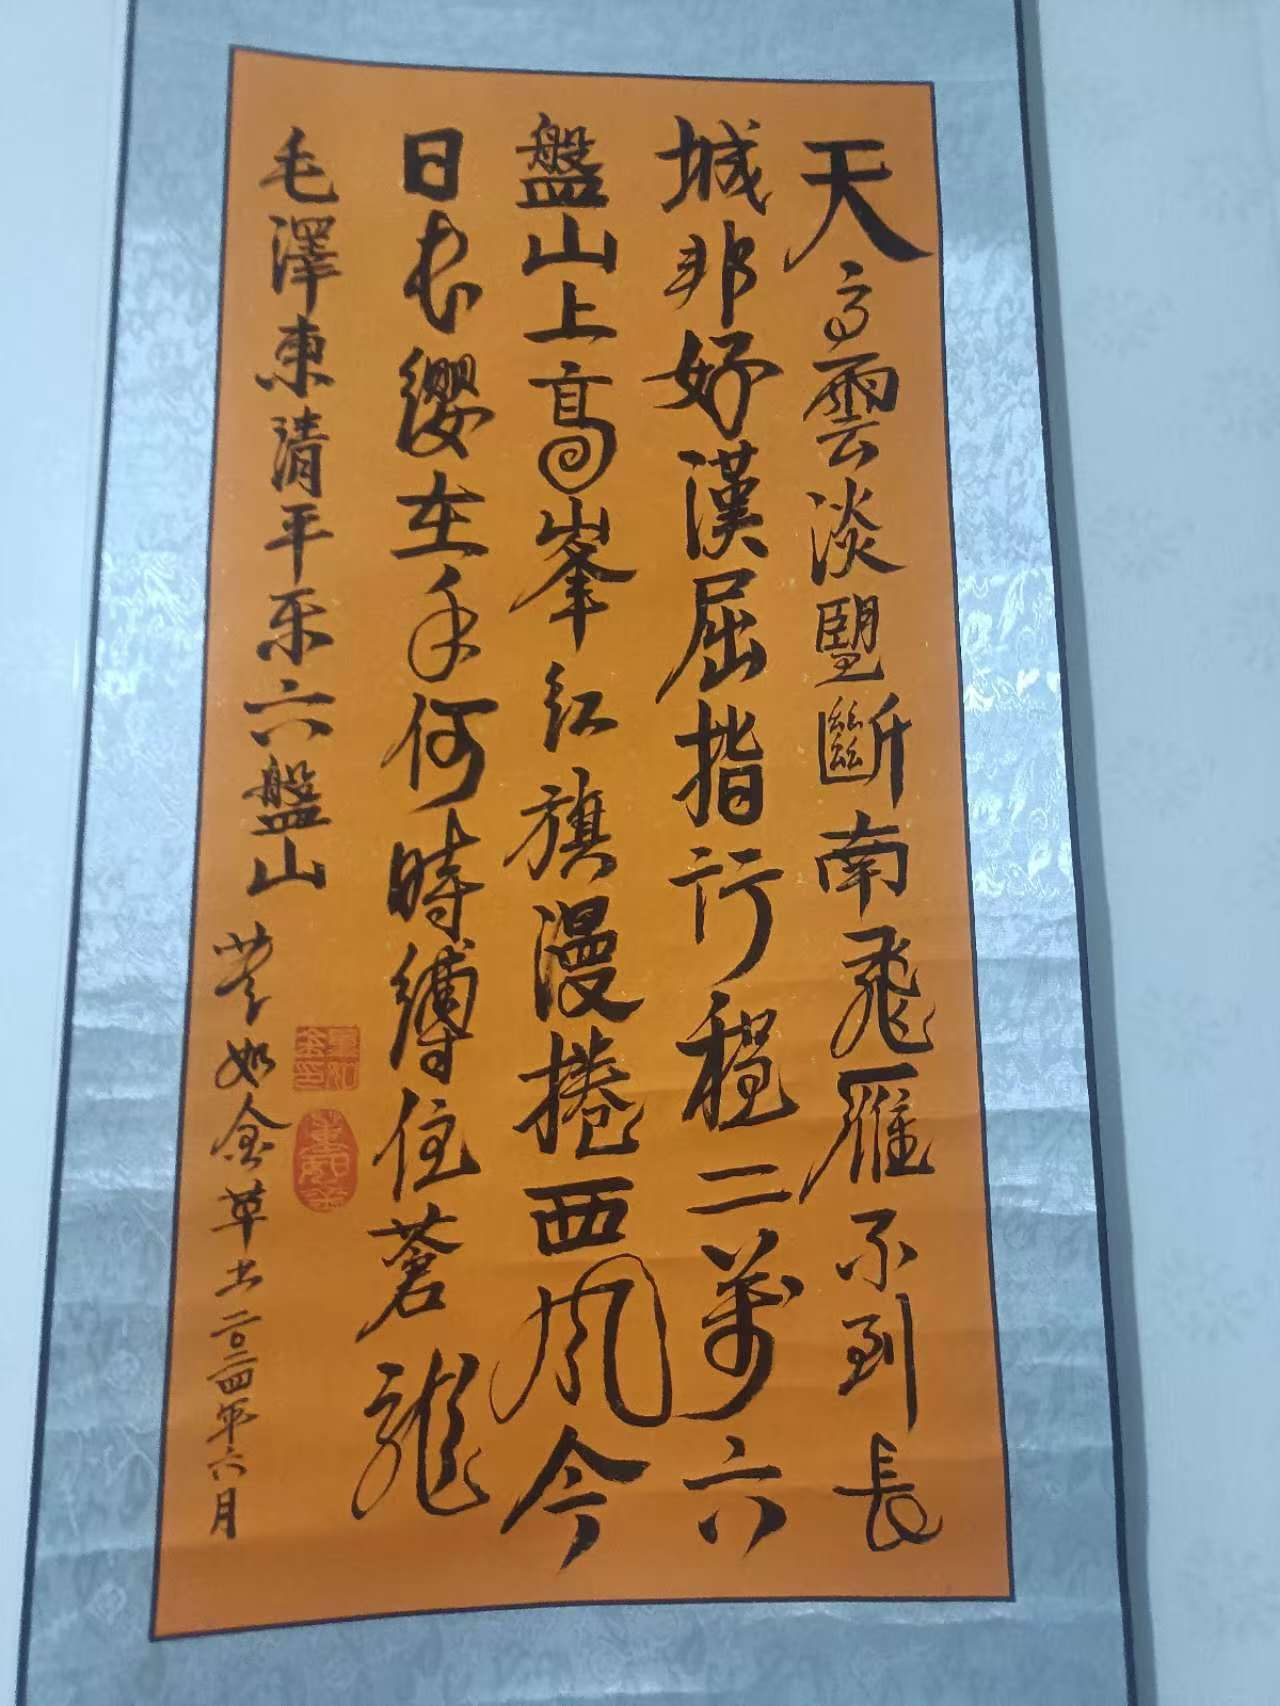 天高雲淡朢斷南飛雁不到長
城非好漢屈指行程二萬六
盤山上高峯红旗漫捲西风今
日长缨在手何時縛住蒼龍
毛澤東清平乐六盤山
如金草书二〇二四年六月